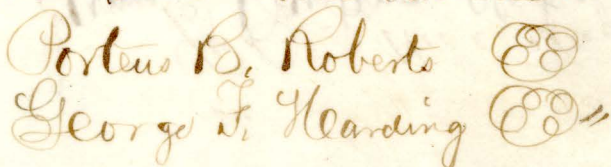 Porteus B. Roberts
George F. Harding "